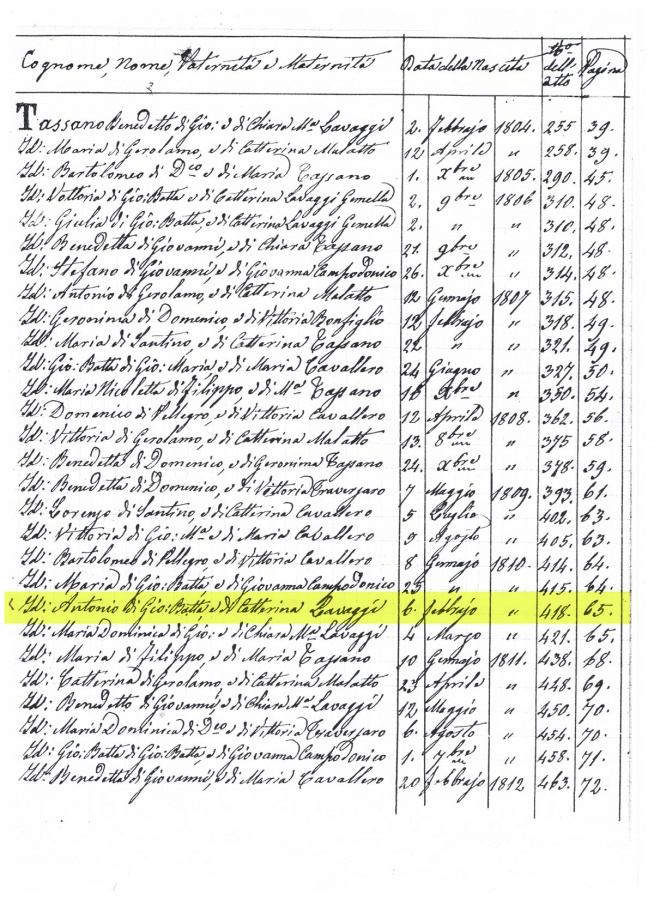 Cognome, Nome, Paternità e Maternità Data della Nascita No. dell' atto Pagina
Tassano Benedetto di Gio: e di Chiara Ma Lavaggi 2. Febbrajo 1804. 255 39.
Id: Maria di Gerolamo, e di Catterina Malatto 12 Aprile " 258. 39.
Id: Bartolomeo di Dco e di Maria Tassano 1. Xbre 1805. 290. 45.
Id: Vottoria di Gio: Batta e di Catterina Lavaggi Gemella 2. 9bre 1806 310. 48.
Id: Giulia di Gio: Batta, e di Catterina Lavaggi Gemella 2. " " 310. 48.
Id: Benedetta di Giovanni, e di Chiara Tassano 21. 9bre " 312. 48.
Id: Stefano di Giovanni, e di Giovanna Campodonico 26. Xbre " 314. 48.
Id: Antonio di Gerolamo, e di Catterina Malatto 12 Gennajo 1807 315. 48.
Id: Geronima di Domenico, e di Vittoria Bonfiglio 12 Febbrajo " 318. 49.
Id: Maria di Santino, e di Catterina Tassano 22 " " 321. 49.
Id: Gio: Batta di Gio: Maria, e di Maria Cavallero 24 Giugno " 327. 50.
Id: Maria Nicoletta di Filippo, e di Ma Tassano 16 Xbre " 350. 54.
Id: Domenico di Pellegro, e di Vittoria Cavallero 12 Aprile 1808. 362. 56.
Id: Vittoria di Gerolamo, e di Catterina Malatto 13. 8bre " 375 58.
Id: Benedetta di Domenico, e di Geronima Tassano 24. Xbre " 378. 59.
Id: Benedetta di Domenico, e di Vittoria Traversaro 7 Maggio 1809. 393. 61.
Id: Lorenzo di Santino, e di Catterina Cavallero 5 Luglio " 402. 63.
Id: Vittoria di Gio: Ma e di Maria Cavallero 9 Agosto " 405. 63.
Id: Bartolomeo di Pellegro, e di Vittoria Cavallero 8 Gennajo 1810. 414. 64.
Id: Maria di Gio: Batta e di Giovanna Campodonico 25 " " 415. 64.
Id: Antonio di Gio: Batta e di Catterina Lavaggi 6. Febbrajo " 418. 65.
Id: Maria Dominica di Gio: e di Chiara Ma Lavaggi 4 Marzo " 421. 65.
Id: Maria di Filippo, e di Maria Tassano 10 Gennajo 1811. 438. 68.
Id: Catterina di Gerolamo, e di Catterina Malatto 23 Aprile " 448. 69.
Id: Benedetto di Giovanni, e di Chiara Ma Lavaggi 12 Maggio " 450. 70.
Id: Maria Dominica di Dco e di Vittoria Traversaro 6. Agosto " 454. 70.
Id: Gio: Batta di Gio: Batta, e di Giovanna Campodonico 1. 7bre " 458. 71.
Id: Benedetta di Giovanni, e di Maria Cavallero 20 Febbrajo 1812 463. 72.